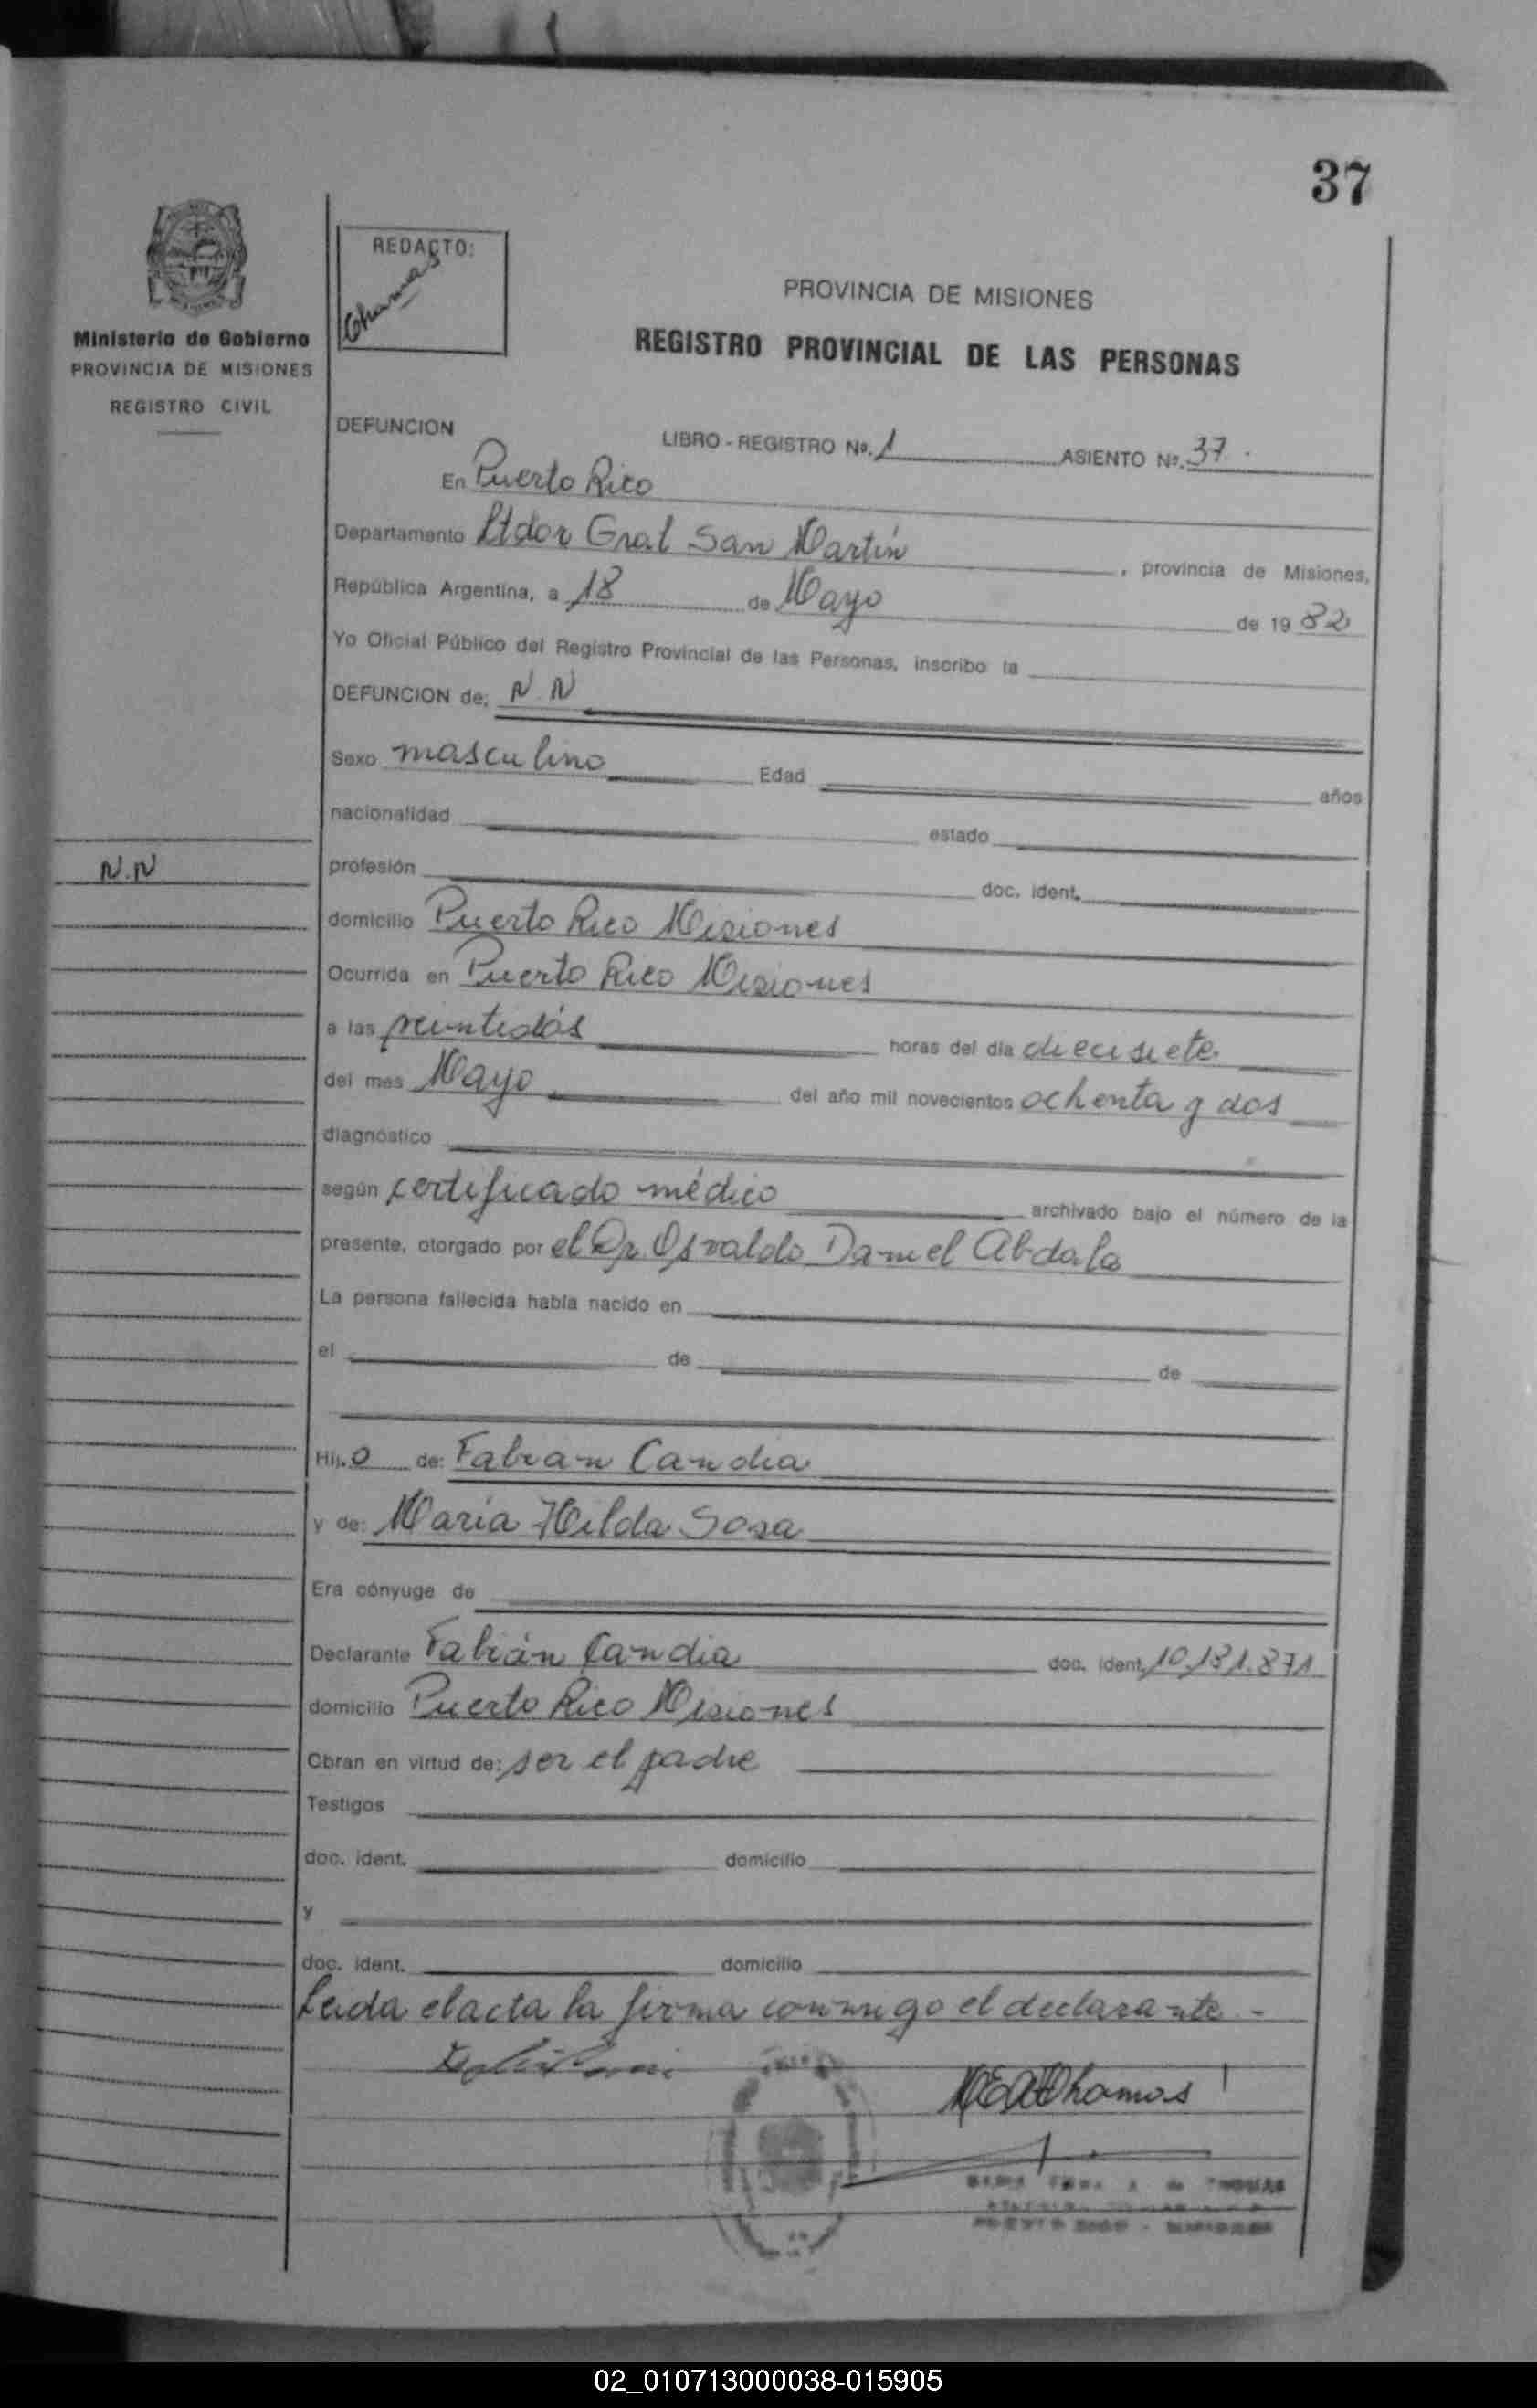 37
REDACTO:
Thomas
Ministerio de Gobierno
PROVINCIA DE MISIONES
REGISTRO CIVIL
PROVINCIA DE MISIONES
REGISTRO PROVINCIAL DE LAS PERSONAS
DEFUNCION LIBRO - REGISTRO No. 1 ASIENTO No. 37.
En Puerto Rico
Departamento Ltdor Gral San Martín, provincia de Misiones,
República Argentina, a 18 de Mayo de 1982
Yo Oficial Público del Registro Provincial de las Personas, inscribo la
DEFUNCION de: N.N
Sexo masculino Edad años
nacionalidad estado
N.N
profesión doc. ident.
domicilio Puerto Rico Misiones
Ocurrida en Puerto Rico Misiones
a las veintidós horas del día diecisiete.
del mes Mayo del año mil novecientos ochenta y dos
diagnóstico
según certificado médico archivado bajo el número de la
presente, otorgado por el Dr. Osvaldo Daniel Abdala
La persona fallecida había nacido en
el de de
Hij.o de: Fabian Candia
y de: María Hilda Sosa
Era cónyuge de
Declarante Fabián Candia doc. ident. 10.181.871
domicilio Puerto Rico Misiones
Obran en virtud de: ser el padre
Testigos
doc. ident. domicilio
y
doc. ident. domicilio
Leida el acta la firma conmigo el declarante.-
02_010713000038-015905